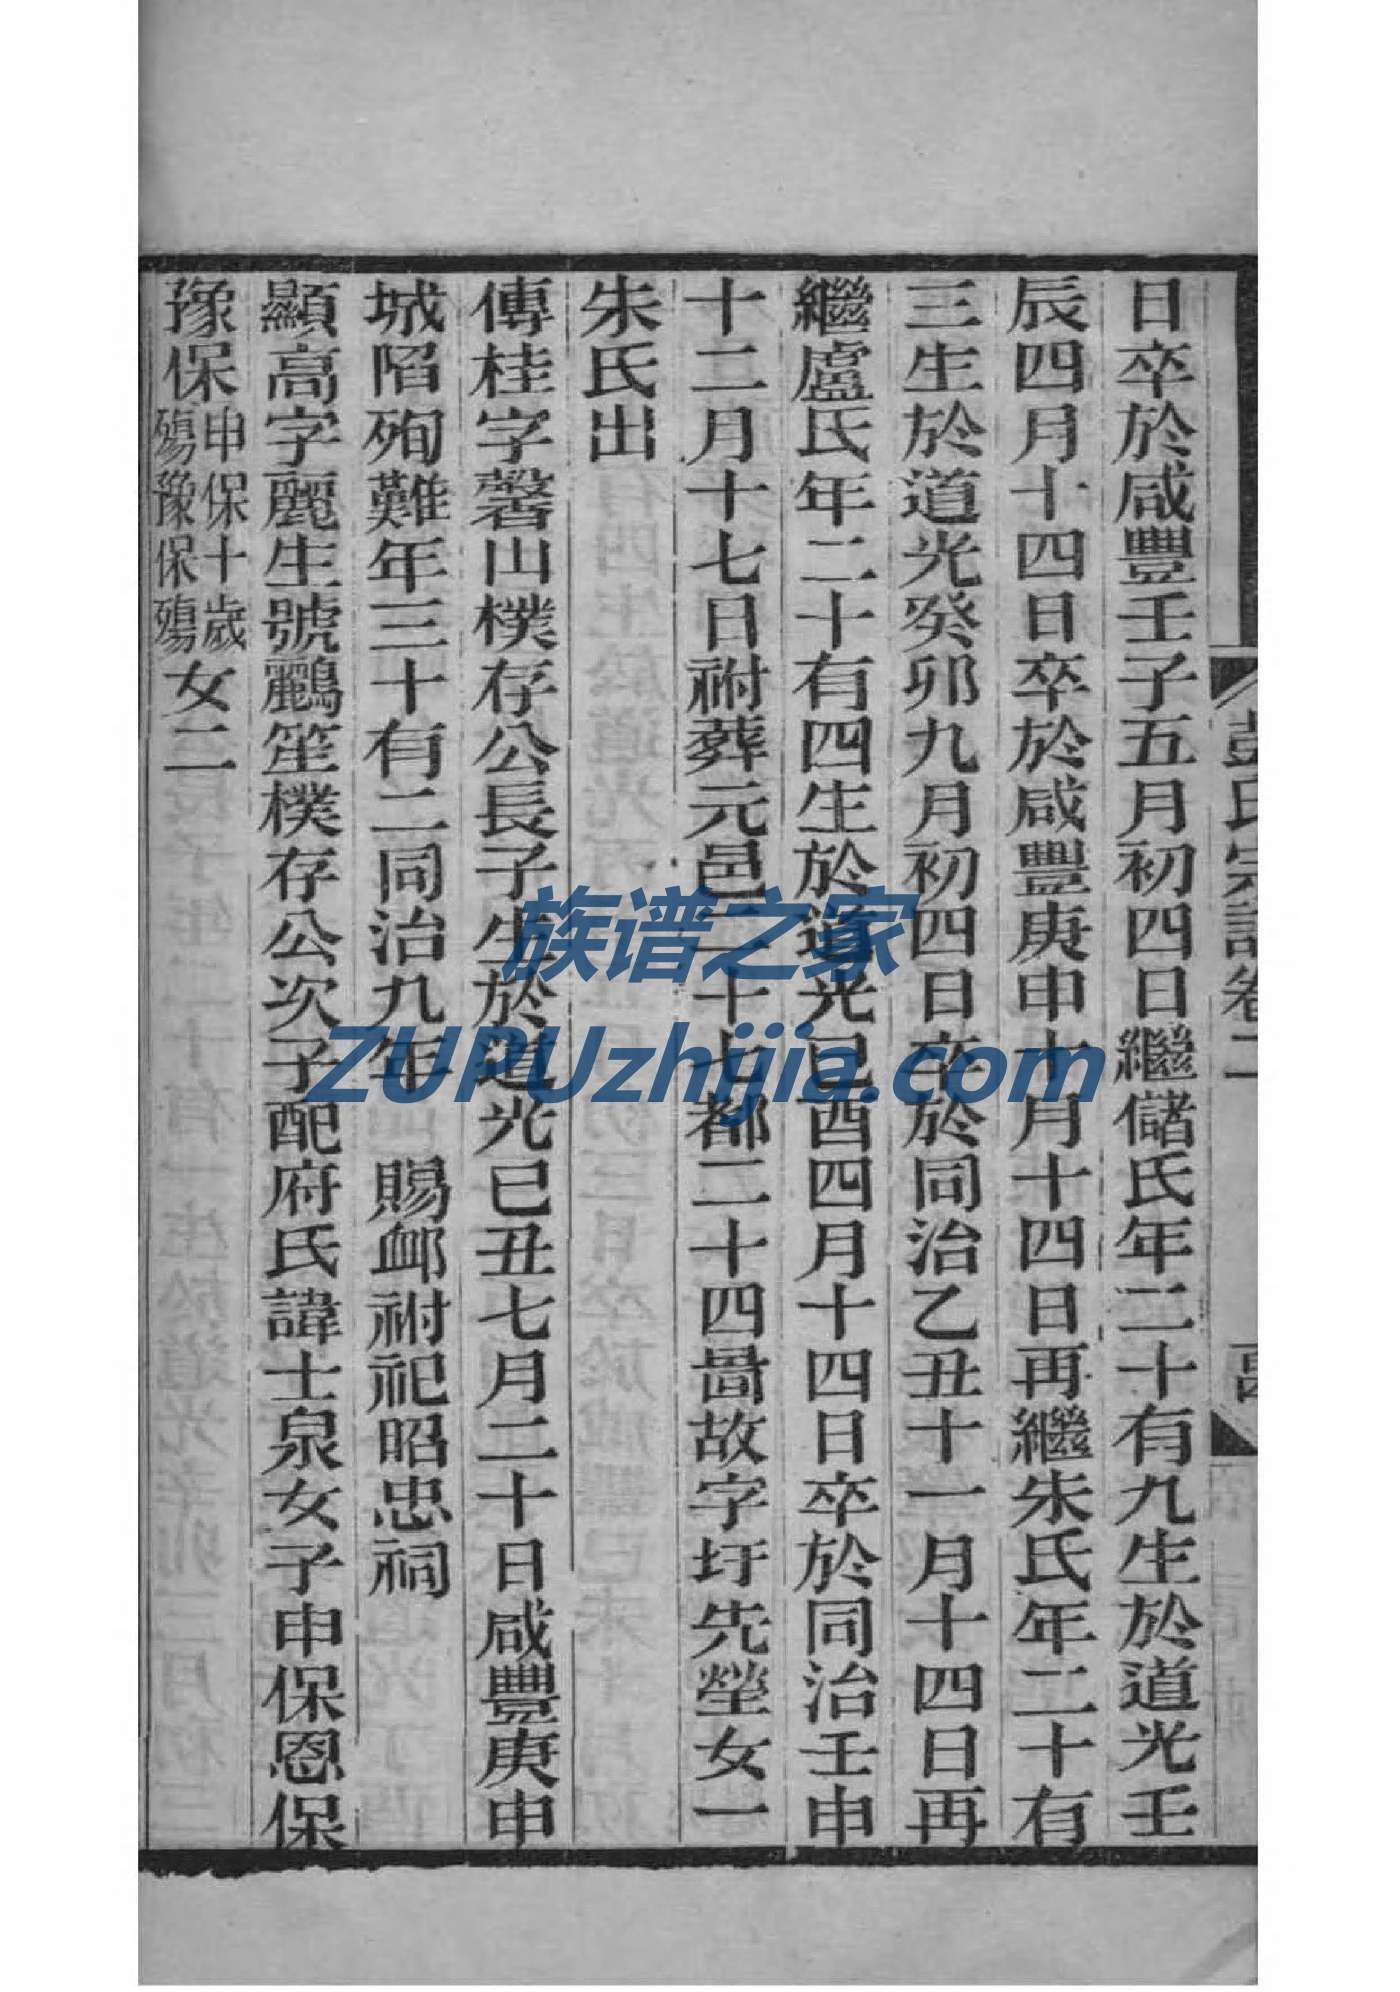 日卒於咸豐壬子五月初四日繼儲氏年二十有九生於道光壬
辰四月十四日卒於咸豐庚申十月十四日再繼朱氏年二十有
三生於道光癸卯九月初四日卒於同治乙丑十一月十四日再
繼盧氏年二十有四生於道光己酉四月十四日卒於同治壬申
十二月十七日祔葬元邑二十七都二十四啚故字圩先塋女一
朱氏出
傳桂字馨山樸存公長子生於道光己丑七月二十日咸豐庚申
城陷殉難年三十有二同治九年 賜卹祔祀昭忠祠
顯高字麗生號鸝笙樸存公次子配府氏諱士泉女子申保恩保
豫保申保十歲殤豫保殤女二
彭氏宗譜卷二
族谱之家
ZUPUzhijia.com